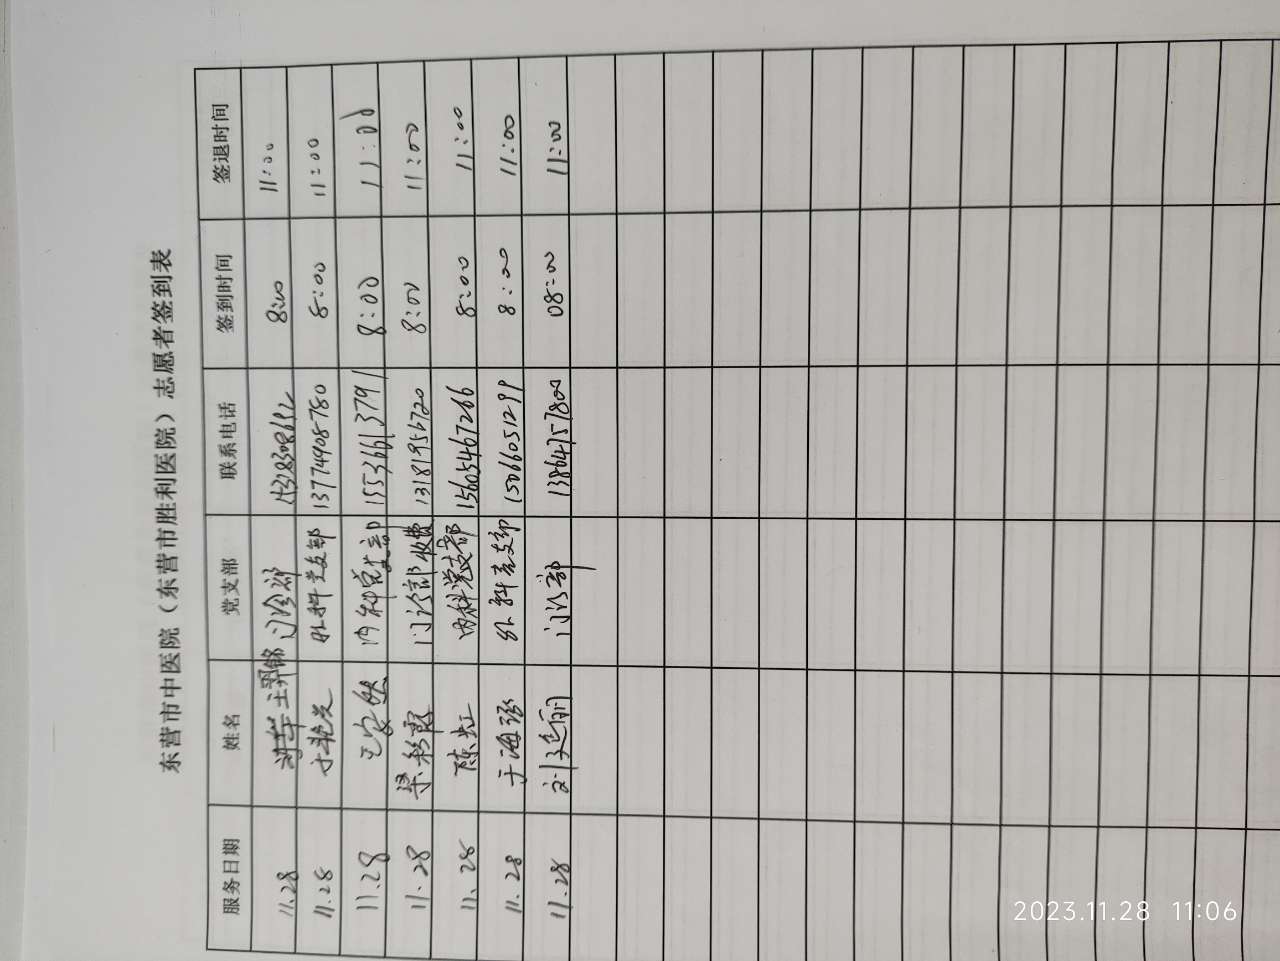 东营市中医院（东营市胜利医院）志愿者签到表
服务日期 姓名 党支部 联系电话 签到时间 签退时间
11.28 门诊部 8:00 11:00
11.28 于艳芝 外科党支部 13774908780 8:00 11:00
11.28 内科党支部 15536613791 8:00 11:00
11.28 梁彩霞 门诊部收费 13181956720 8:00 11:00
11.28 陈虹 内科党支部 15605467266 8:00 11:00
11.28 于海 外科党支部 15066051299 8:00 11:00
11.28 刘延丽 门诊部 13864757800 08:00 11:00
2023.11.28 11:06